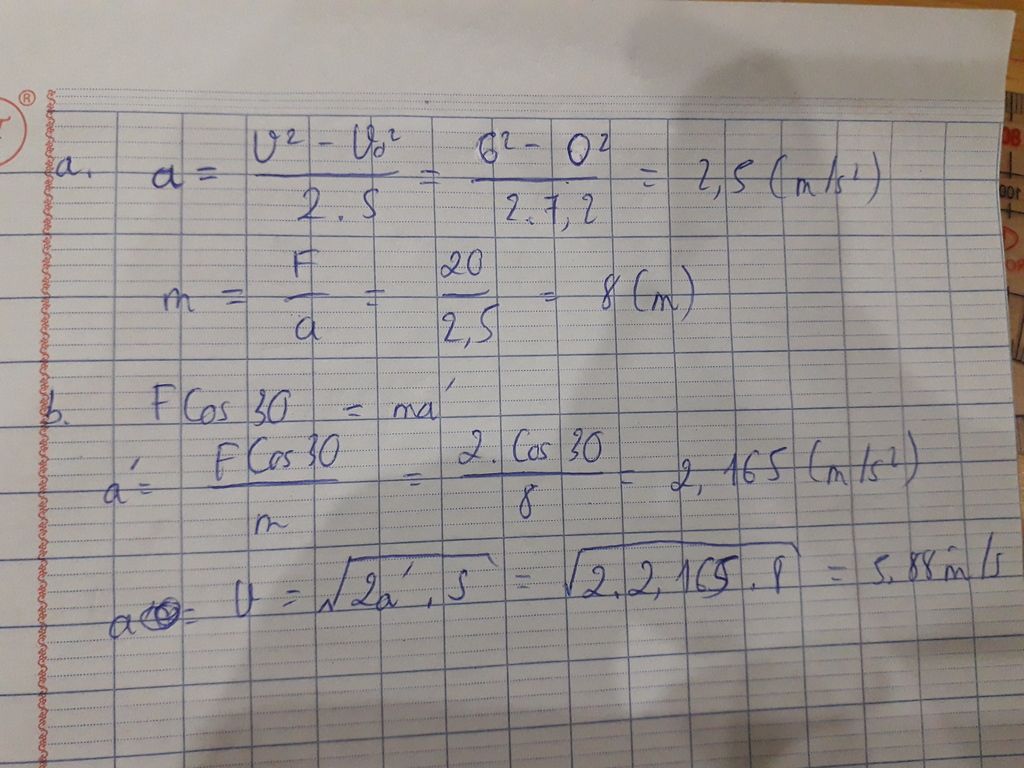 a. a = (v² - v₀²)/(2.S) = (6² - 0²)/(2.7,2) = 2,5 (m/s²)
m = F/a = 20/2,5 = 8 (m)
b. F Cos 30 = ma'
a' = (F Cos 30)/m = (2. Cos 30)/8 = 2,165 (m/s²)
a = v = √(2a'.S) = √(2.2,165.8) = 5.88 m/s